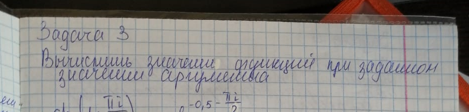 Задача 3
Вычислить значение функций при заданном
значении аргумента
e^{-0,5 - \frac{πi}{2}}